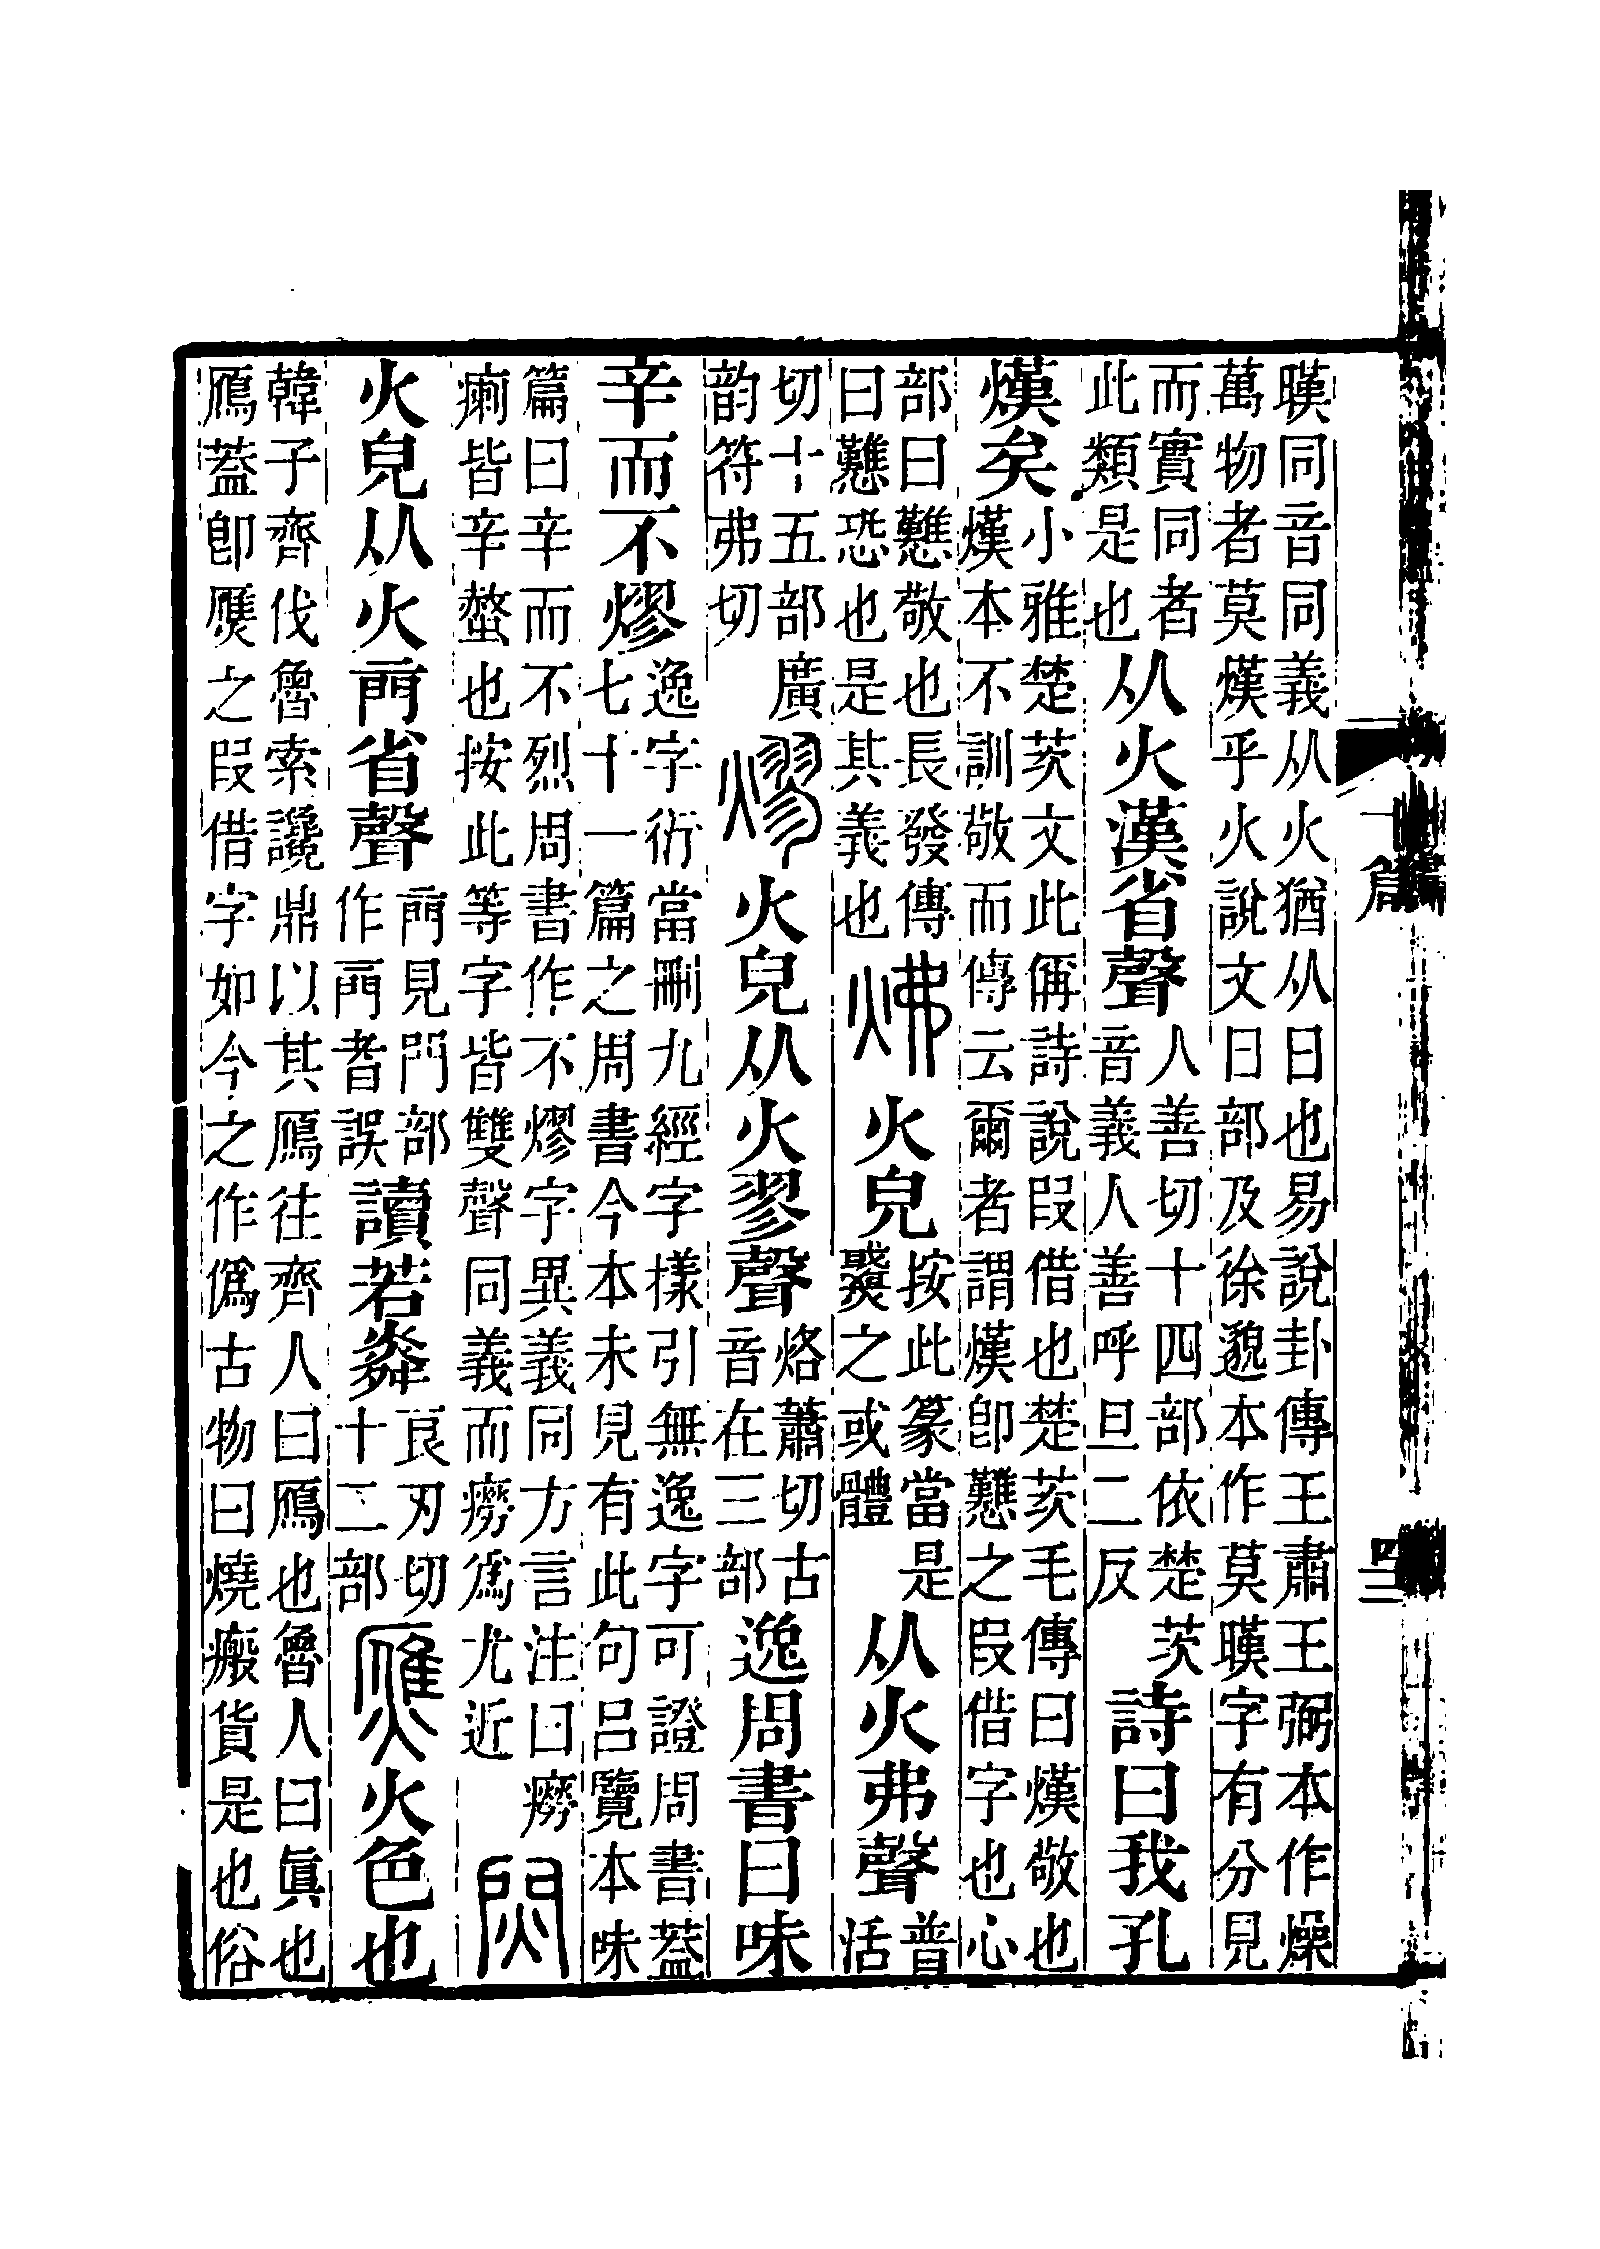 暵同音同義从火猶从日也易說卦傳王肅王弼本作燥
萬物者莫熯乎火說文日部及徐邈本作莫暵字有分見
而實同者
此類是也
从火漢省聲
人善切十四部依楚茨
音義人善呼旦二反
詩曰我孔
熯矣
小雅楚茨文此偁詩說叚借也楚茨毛傳曰熯敬也
熯本不訓敬而傳云爾者謂熯卽戁之叚借字也心
部曰戁敬也長發傳
曰戁恐也是其義也
炥火皃
按此篆當是
㷸之或體
从火弗聲
普
活
切十五部廣
韵符弗切
熮火皃从火翏聲
烙蕭切古
音在三部
逸周書曰味
辛而不熮
逸字衍當刪九經字樣引無逸字可證周書蓋
七十一篇之周書今本未見有此句呂覽本味
篇曰辛而不烈周書作不熮字異義同方言注曰癆
瘌皆辛螫也按此等字皆雙聲同義而癆爲尤近
焛
火皃从火省聲
見門部
作者誤
讀若粦
良刃切
十二部
火色也
韓子齊伐魯索讒鼎以其鴈往齊人曰鴈也魯人曰眞也
鴈蓋卽之叚借字如今之作僞古物曰燒瘢貨是也俗
一篇